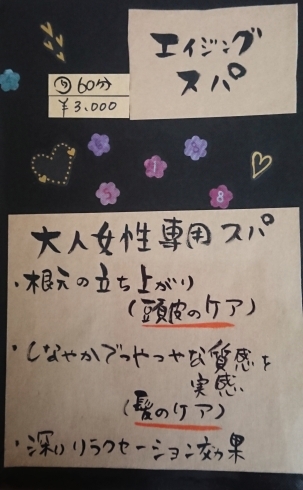 エイジング
スパ
約60分
¥3,000
1
8
大人女性専用スパ
・根元の立ち上がり
(頭皮のケア)
・しなやかでつやつやな質感を
実感
(髪のケア)
・深いリラクセーション効果